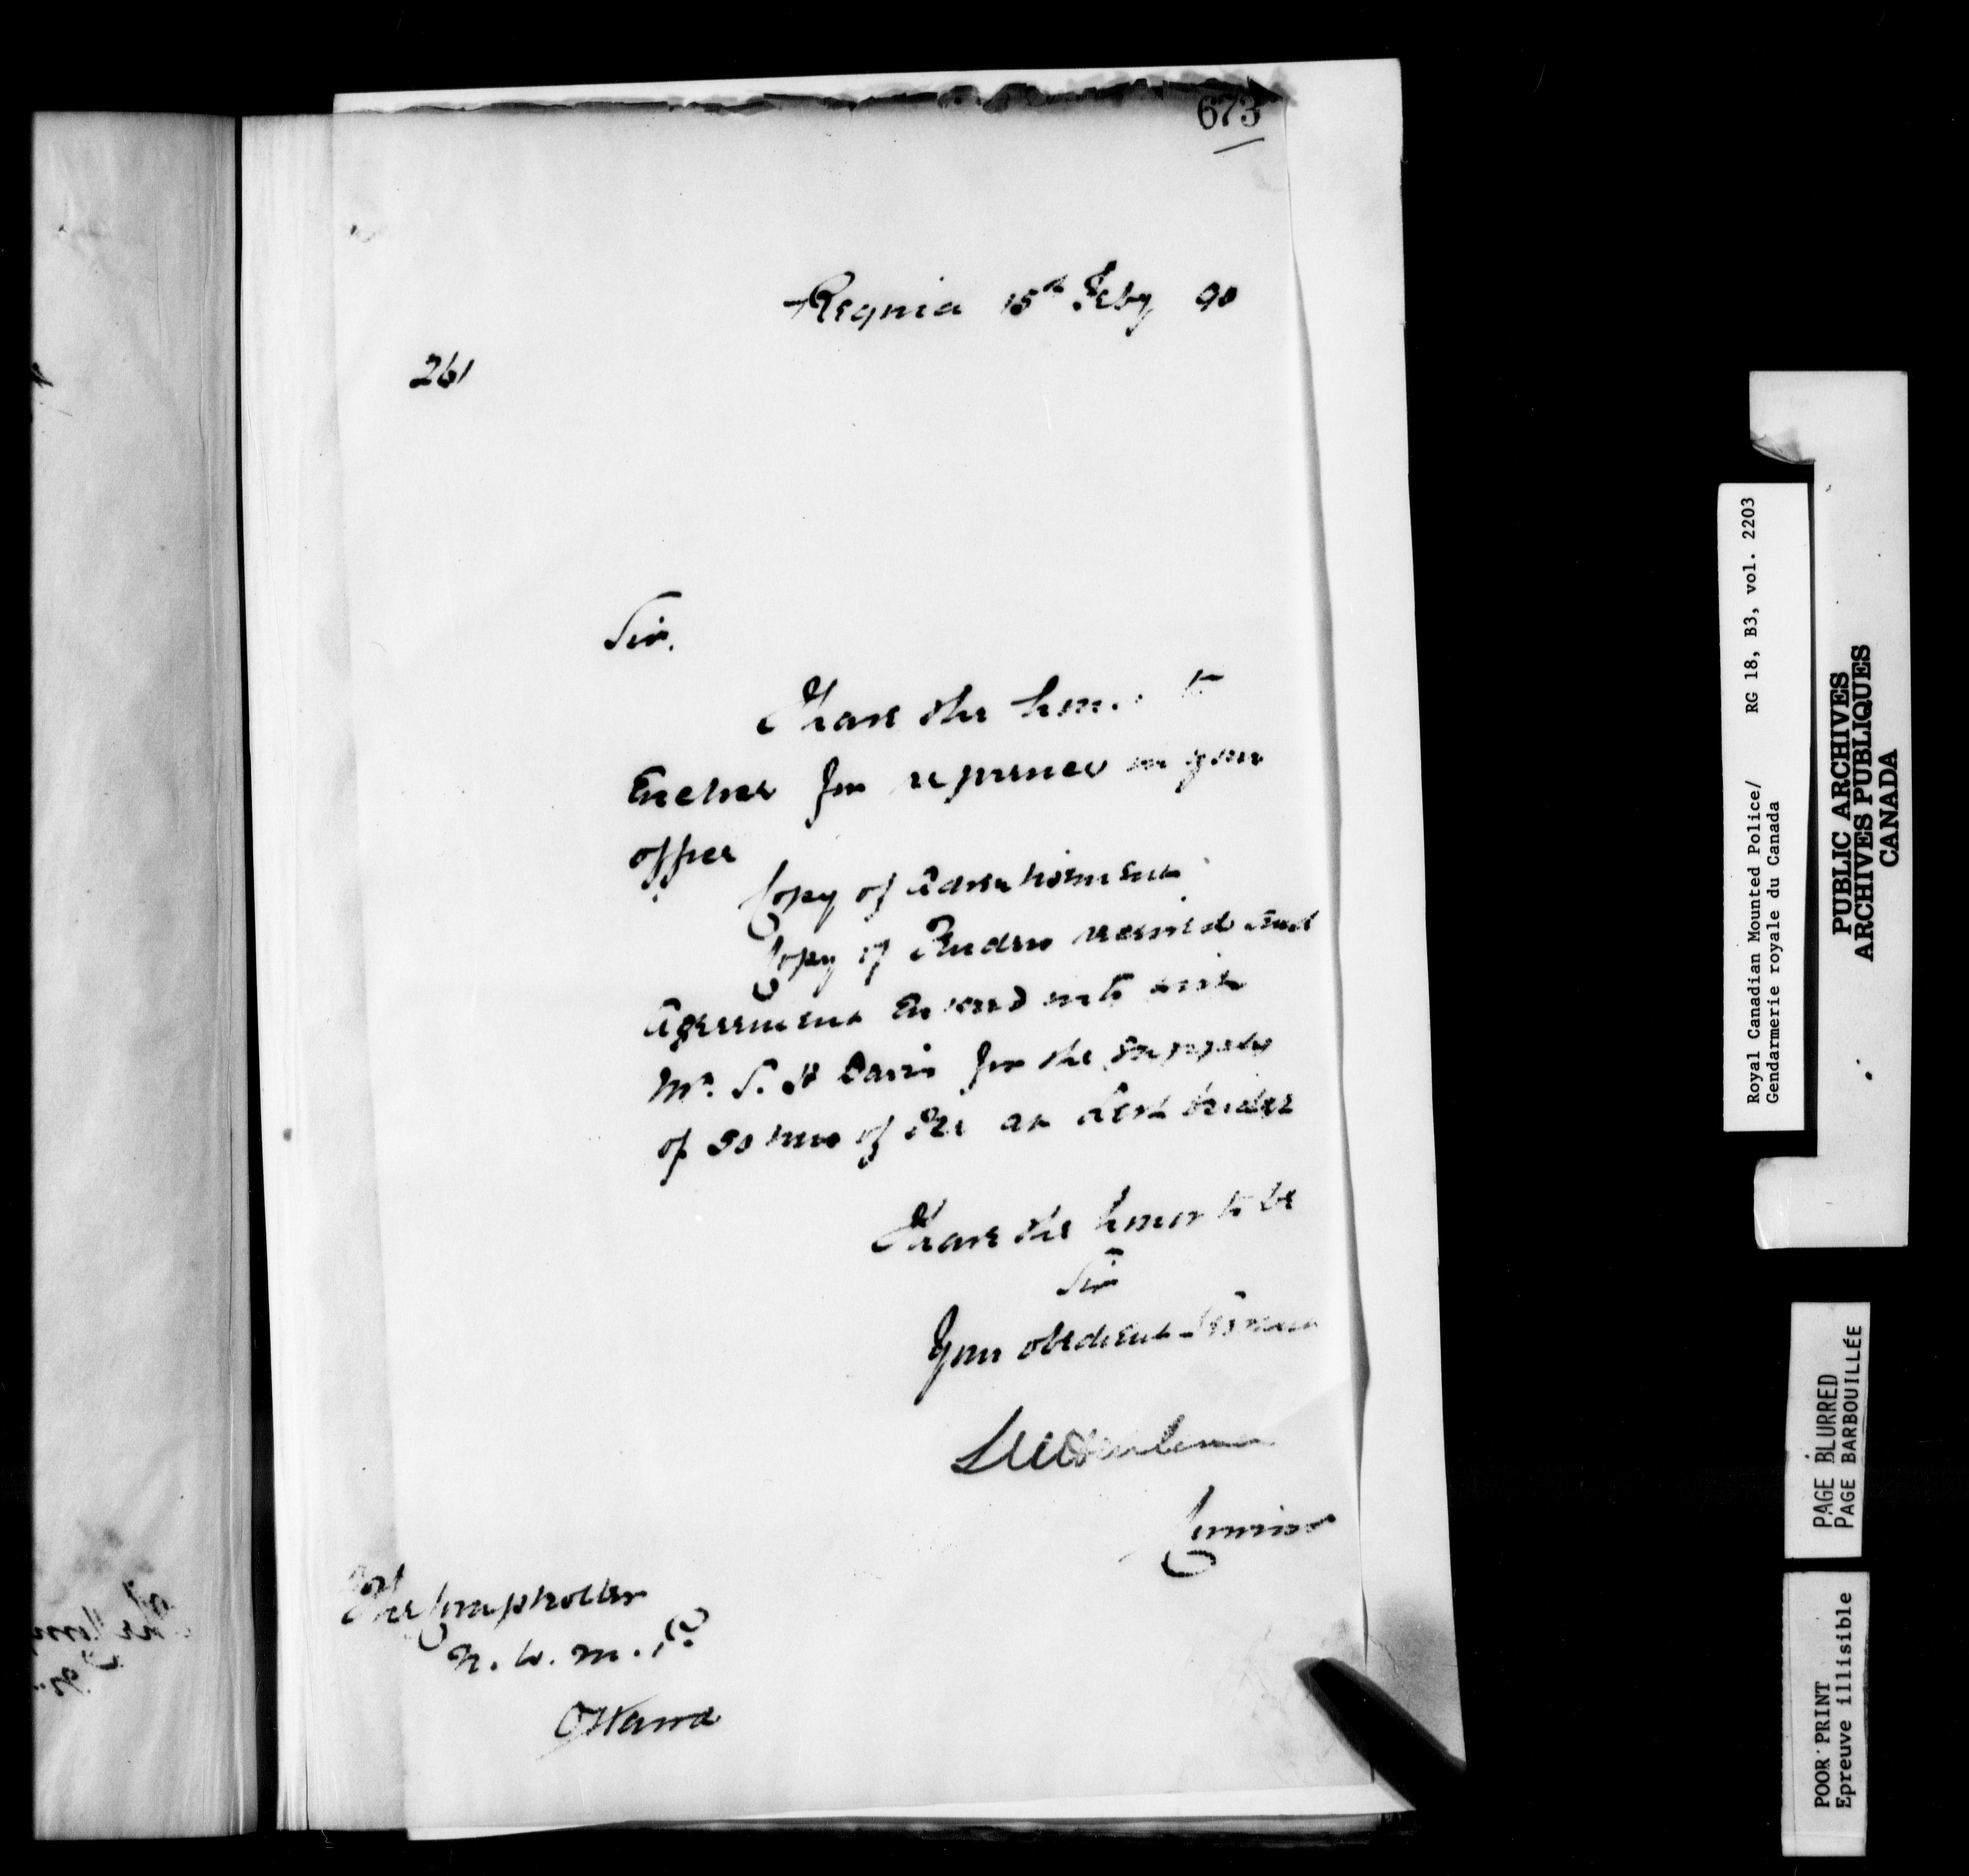 673
Regina 15th Feby 90
261
Sir.
I have the honor to
Enclose for reference in your
office
Copy of Advertisement
Copy of Tenders received and
Agreement Entered into with
Mr. S. H Davis for the supply
of 50 tons of Ice as best tender
I have the honor to be
Sir
Your obedient Servant
LWHerchmer
Commissr
The Comptroller
N. W. M. P.
Ottawa
Royal Canadian Mounted Police/ RG 18, B3, vol. 2203
Gendarmerie royale du Canada
PUBLIC ARCHIVES
ARCHIVES PUBLIQUES
CANADA
PAGE BLURRED
PAGE BARBOUILLÉE
POOR PRINT
Epreuve illisible